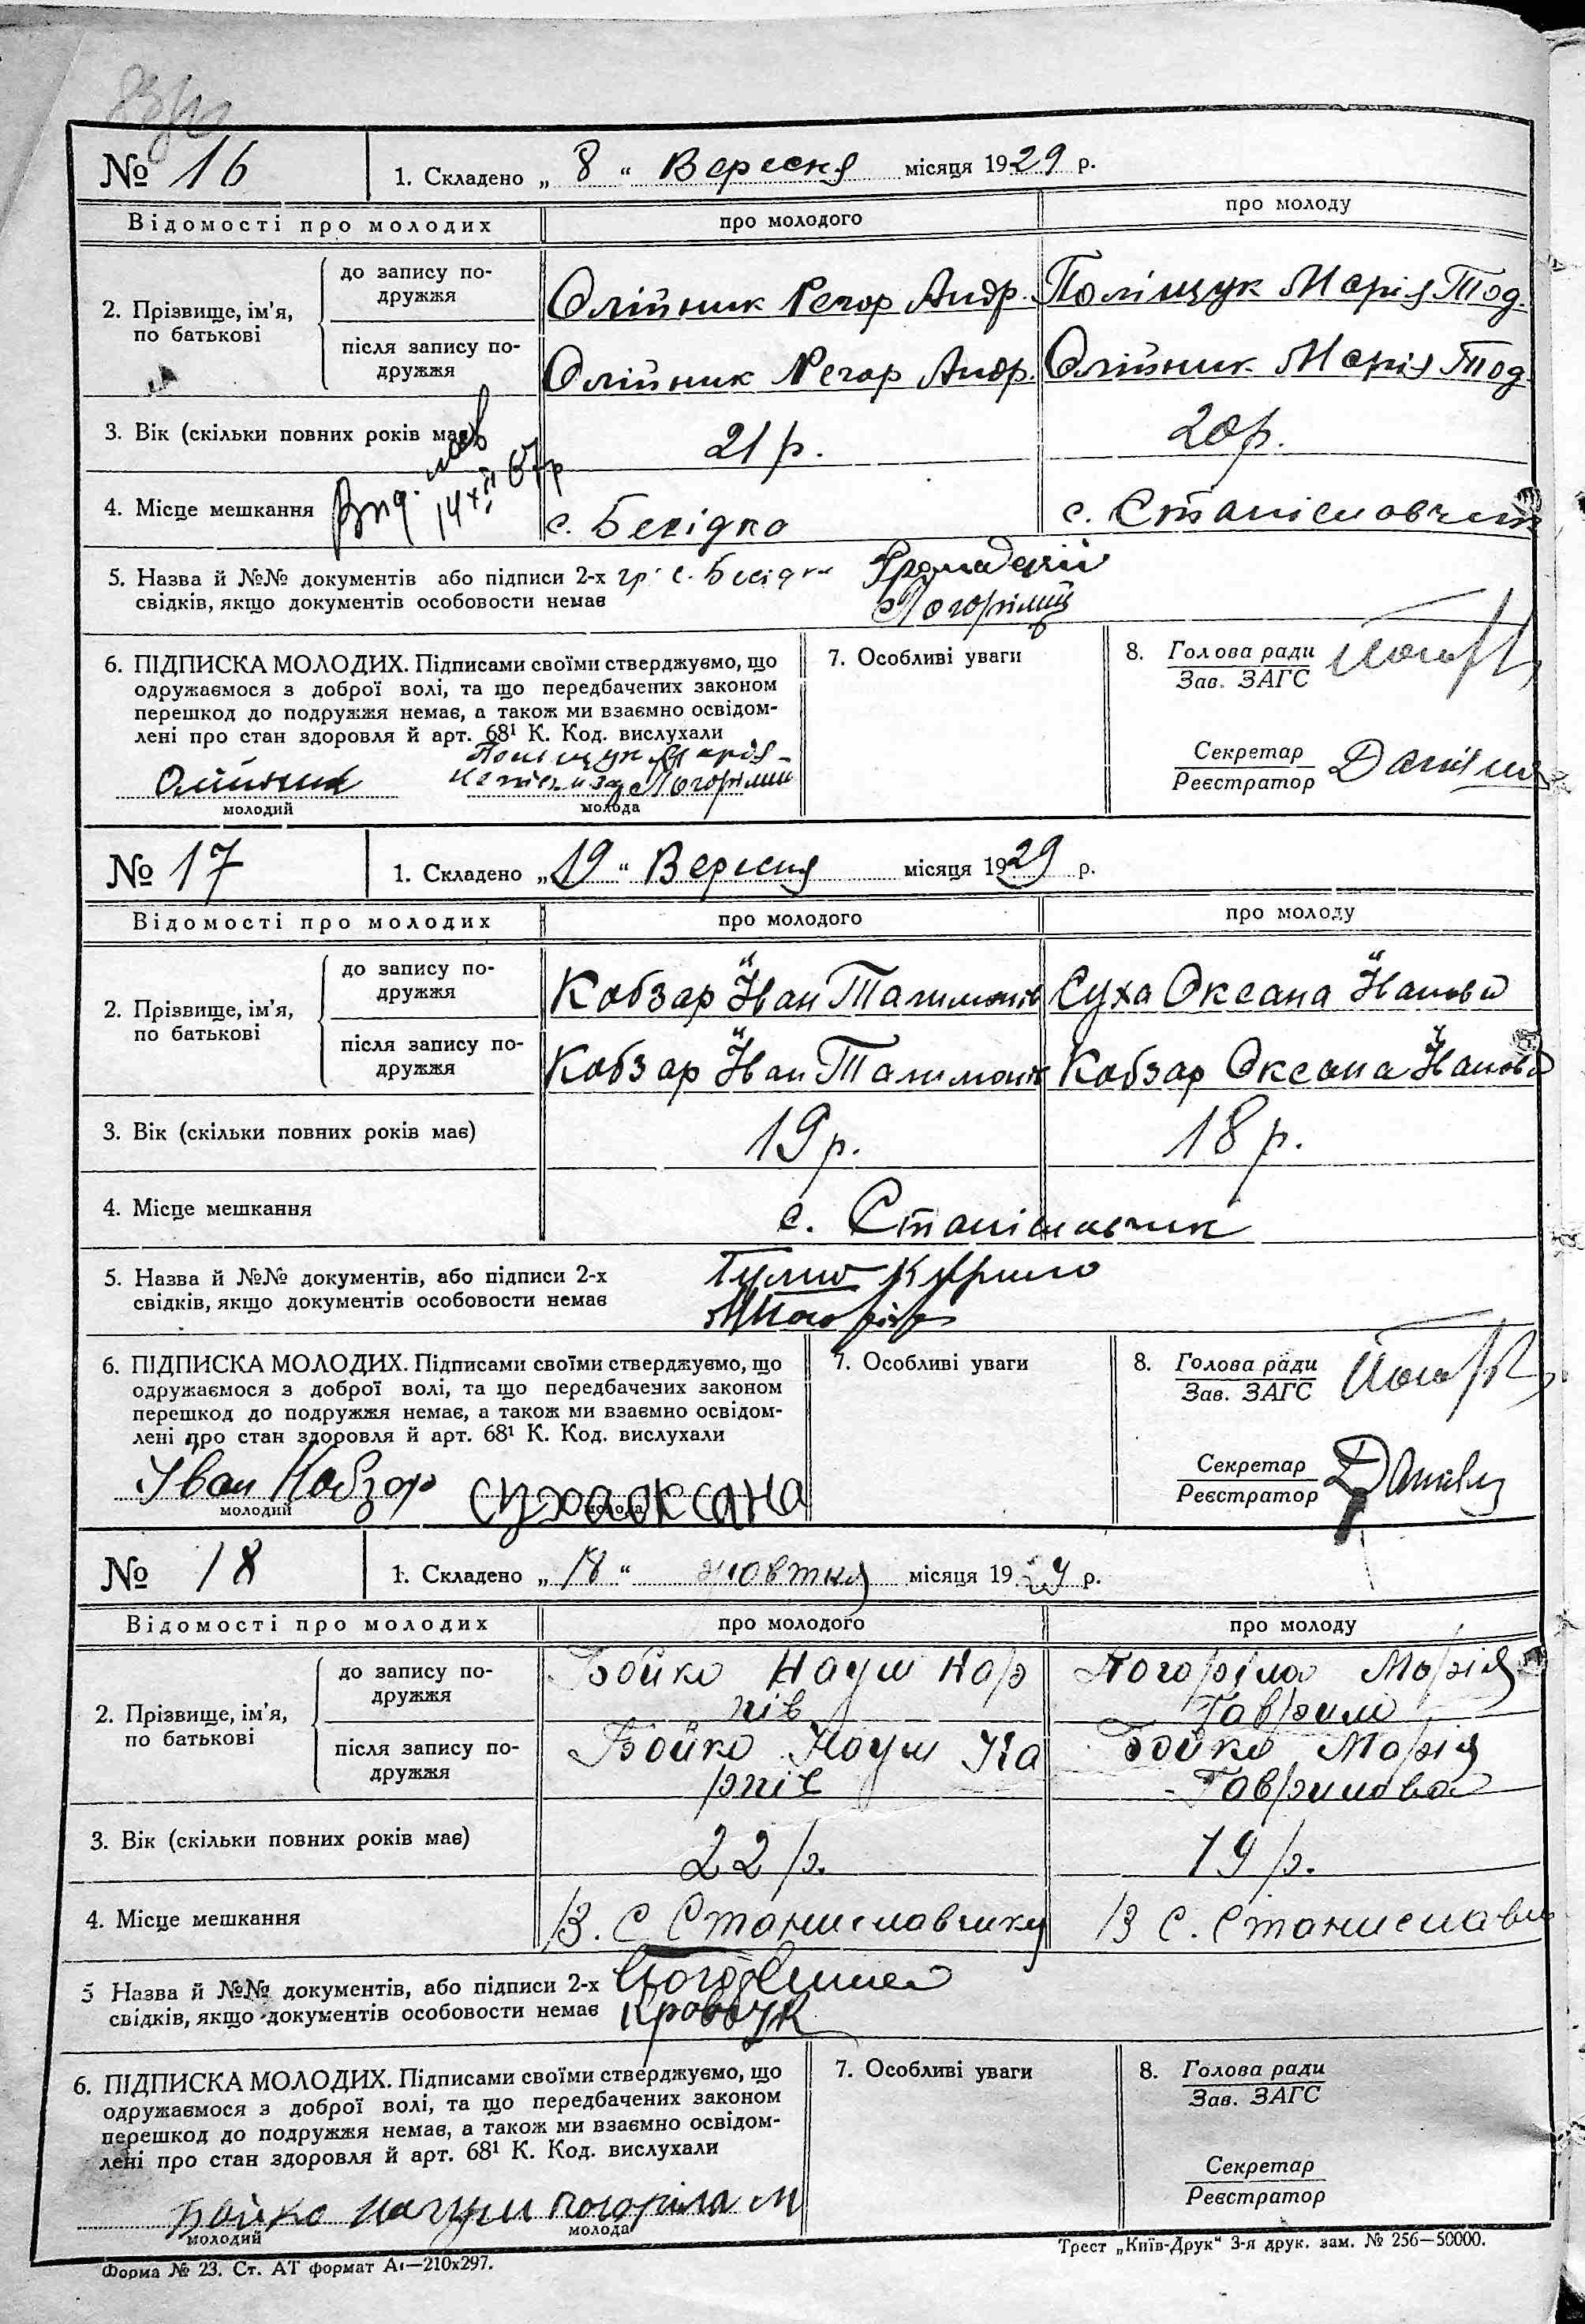 № 16
1. Складено „ 8 “ Вересня місяця 1929 р.
Відомості про молодих
про молодого
про молоду
2. Прізвище, ім'я,
по батькові
до запису по-
дружжя
Олійник Андр.
Поліщук Марія Тод.
після запису по-
дружжя
Олійник Андр.
Олійник Марія Тод.
3. Вік (скільки повних років має)
21 р.
20 р.
4. Місце мешкання
с. Бесідка
с. Станіславчик
5. Назва й №№ документів або підписи 2-х
свідків, якщо документів особовости немає
гр. с. Бесідки
Погорілий
6. ПІДПИСКА МОЛОДИХ. Підписами своїми стверджуємо, що
одружаємося з доброї волі, та що передбачених законом
перешкод до подружжя немає, а також ми взаємно освідом-
лені про стан здоровля й арт. 68¹ К. Код. вислухали
Олійник
Поліщук Марія
Погорілий
молодий
молода
7. Особливі уваги
8. Голова ради
Зав. ЗАГС
Секретар
Реєстратор
№ 17
1. Складено „ 19 “ Вересня місяця 1929 р.
Відомості про молодих
про молодого
про молоду
2. Прізвище, ім'я,
по батькові
до запису по-
дружжя
Кобзар Їван
Суха Оксана Їванова
після запису по-
дружжя
Кобзар Їван
Кобзар Оксана Їванова
3. Вік (скільки повних років має)
19 р.
18 р.
4. Місце мешкання
с. Станіславчик
5. Назва й №№ документів, або підписи 2-х
свідків, якщо документів особовости немає
6. ПІДПИСКА МОЛОДИХ. Підписами своїми стверджуємо, що
одружаємося з доброї волі, та що передбачених законом
перешкод до подружжя немає, а також ми взаємно освідом-
лені про стан здоровля й арт. 68¹ К. Код. вислухали
Іван Кобзор
суха оксана
молодий
молода
7. Особливі уваги
8. Голова ради
Зав. ЗАГС
Секретар
Реєстратор
№ 18
1. Складено „ 18 “ жовтня місяця 1929 р.
Відомості про молодих
про молодого
про молоду
2. Прізвище, ім'я,
по батькові
до запису по-
дружжя
Бойко Наум Кар
пів
Погоріла Марія
Гаврил
після запису по-
дружжя
Бойко Наум Ка
рпів
Бойко Марія
Гаврилова
3. Вік (скільки повних років має)
22 р.
19 р.
4. Місце мешкання
В. С. Станиславчику
В С. Станиславч
5 Назва й №№ документів, або підписи 2-х
свідків, якщо документів особовости немає
Кровчук
6. ПІДПИСКА МОЛОДИХ. Підписами своїми стверджуємо, що
одружаємося з доброї волі, та що передбачених законом
перешкод до подружжя немає, а також ми взаємно освідом-
лені про стан здоровля й арт. 68¹ К. Код. вислухали
Бойко Наум
погоріла М
молодий
молода
7. Особливі уваги
8. Голова ради
Зав. ЗАГС
Секретар
Реєстратор
Форма № 23. Ст. АТ формат А₁—210х297.
Трест „Київ-Друк“ 3-я друк. зам. № 256—50000.